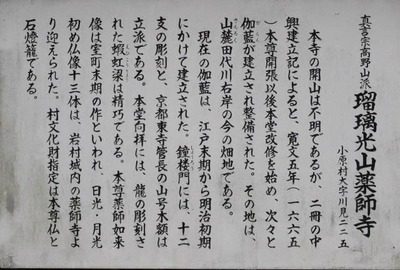 真言宗高野山派
瑠璃光山薬師寺
小原村大字川見二二五
本寺の開山は不明であるが、二冊の中
興建立記によると、寛文五年(一六六五
)本尊開張以後本堂改修を始め、次々と
伽藍が建立され整備された。その地は、
山麓田代川右岸の今の畑地である。
現在の伽藍は、江戸末期から明治初期
にかけて建立された。鐘楼門には、十二
支の彫刻と、京都東寺管長の山号木額は
立派である。本堂向拝には、龍の彫刻さ
れた蝦虹梁は精巧である。本尊薬師如来
像は室町末期の作といわれ、日光・月光
初め仏像十三体は、岩村城内の薬師寺よ
り迎えられた。村文化財指定は本尊仏と
石燈籠である。